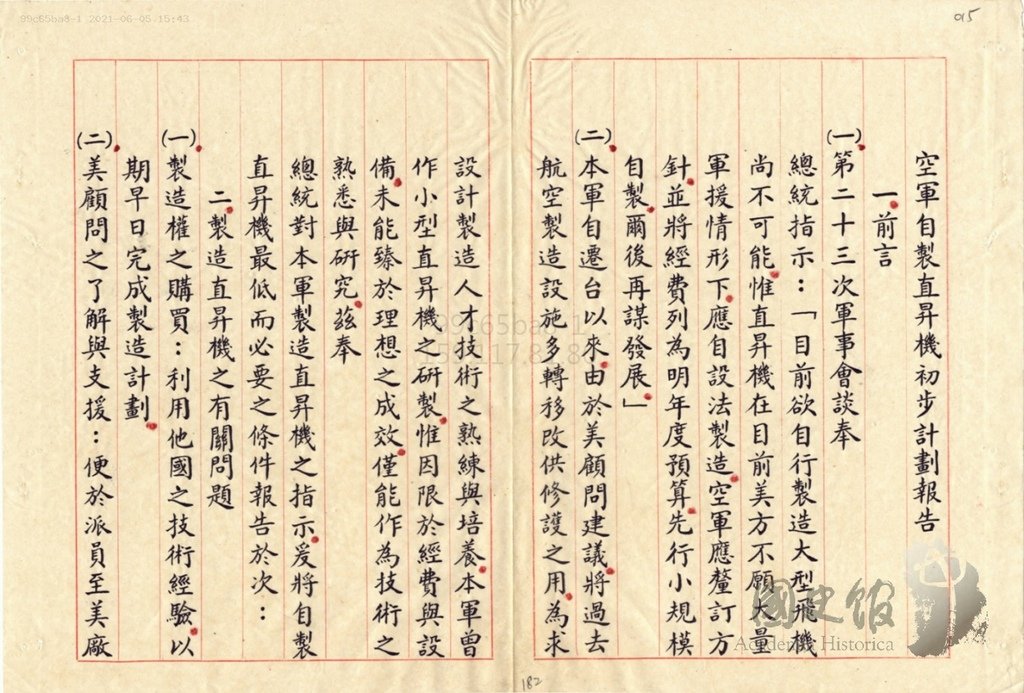 99c65ba8-1 2021-06-05 15:43
015
空軍自製直昇機初步計劃報告
一、前言
(一)第二十三次軍事會談奉
總統指示：「目前欲自行製造大型飛機
尚不可能，惟直昇機在目前美方不願大量
軍援情形下，應自設法製造，空軍應釐訂方
針，並將經費列為明年度預算，先行小規模
自製，爾後再謀發展。」
(二)本軍自遷台以來，由於美顧問建議，將過去
航空製造設施多轉移改供修護之用，為求
設計製造人才技術之熟練與培養，本軍曾
作小型直昇機之研製，惟因限於經費與設
備，未能臻於理想之成效，僅能作為技術之
熟悉與研究，茲奉
總統對本軍製造直昇機之指示，爰將自製
直昇機最低而必要之條件報告於次：
二、製造直昇機之有關問題
(一)製造權之購買：利用他國之技術經驗，以
期早日完成製造計劃。
(二)美顧問之了解與支援：便於派員至美廠
182
國史館
Academia Historica